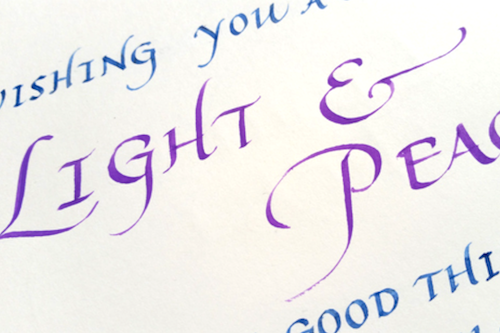 WISHING YOU A
LIGHT &
PEAC
GOOD THI